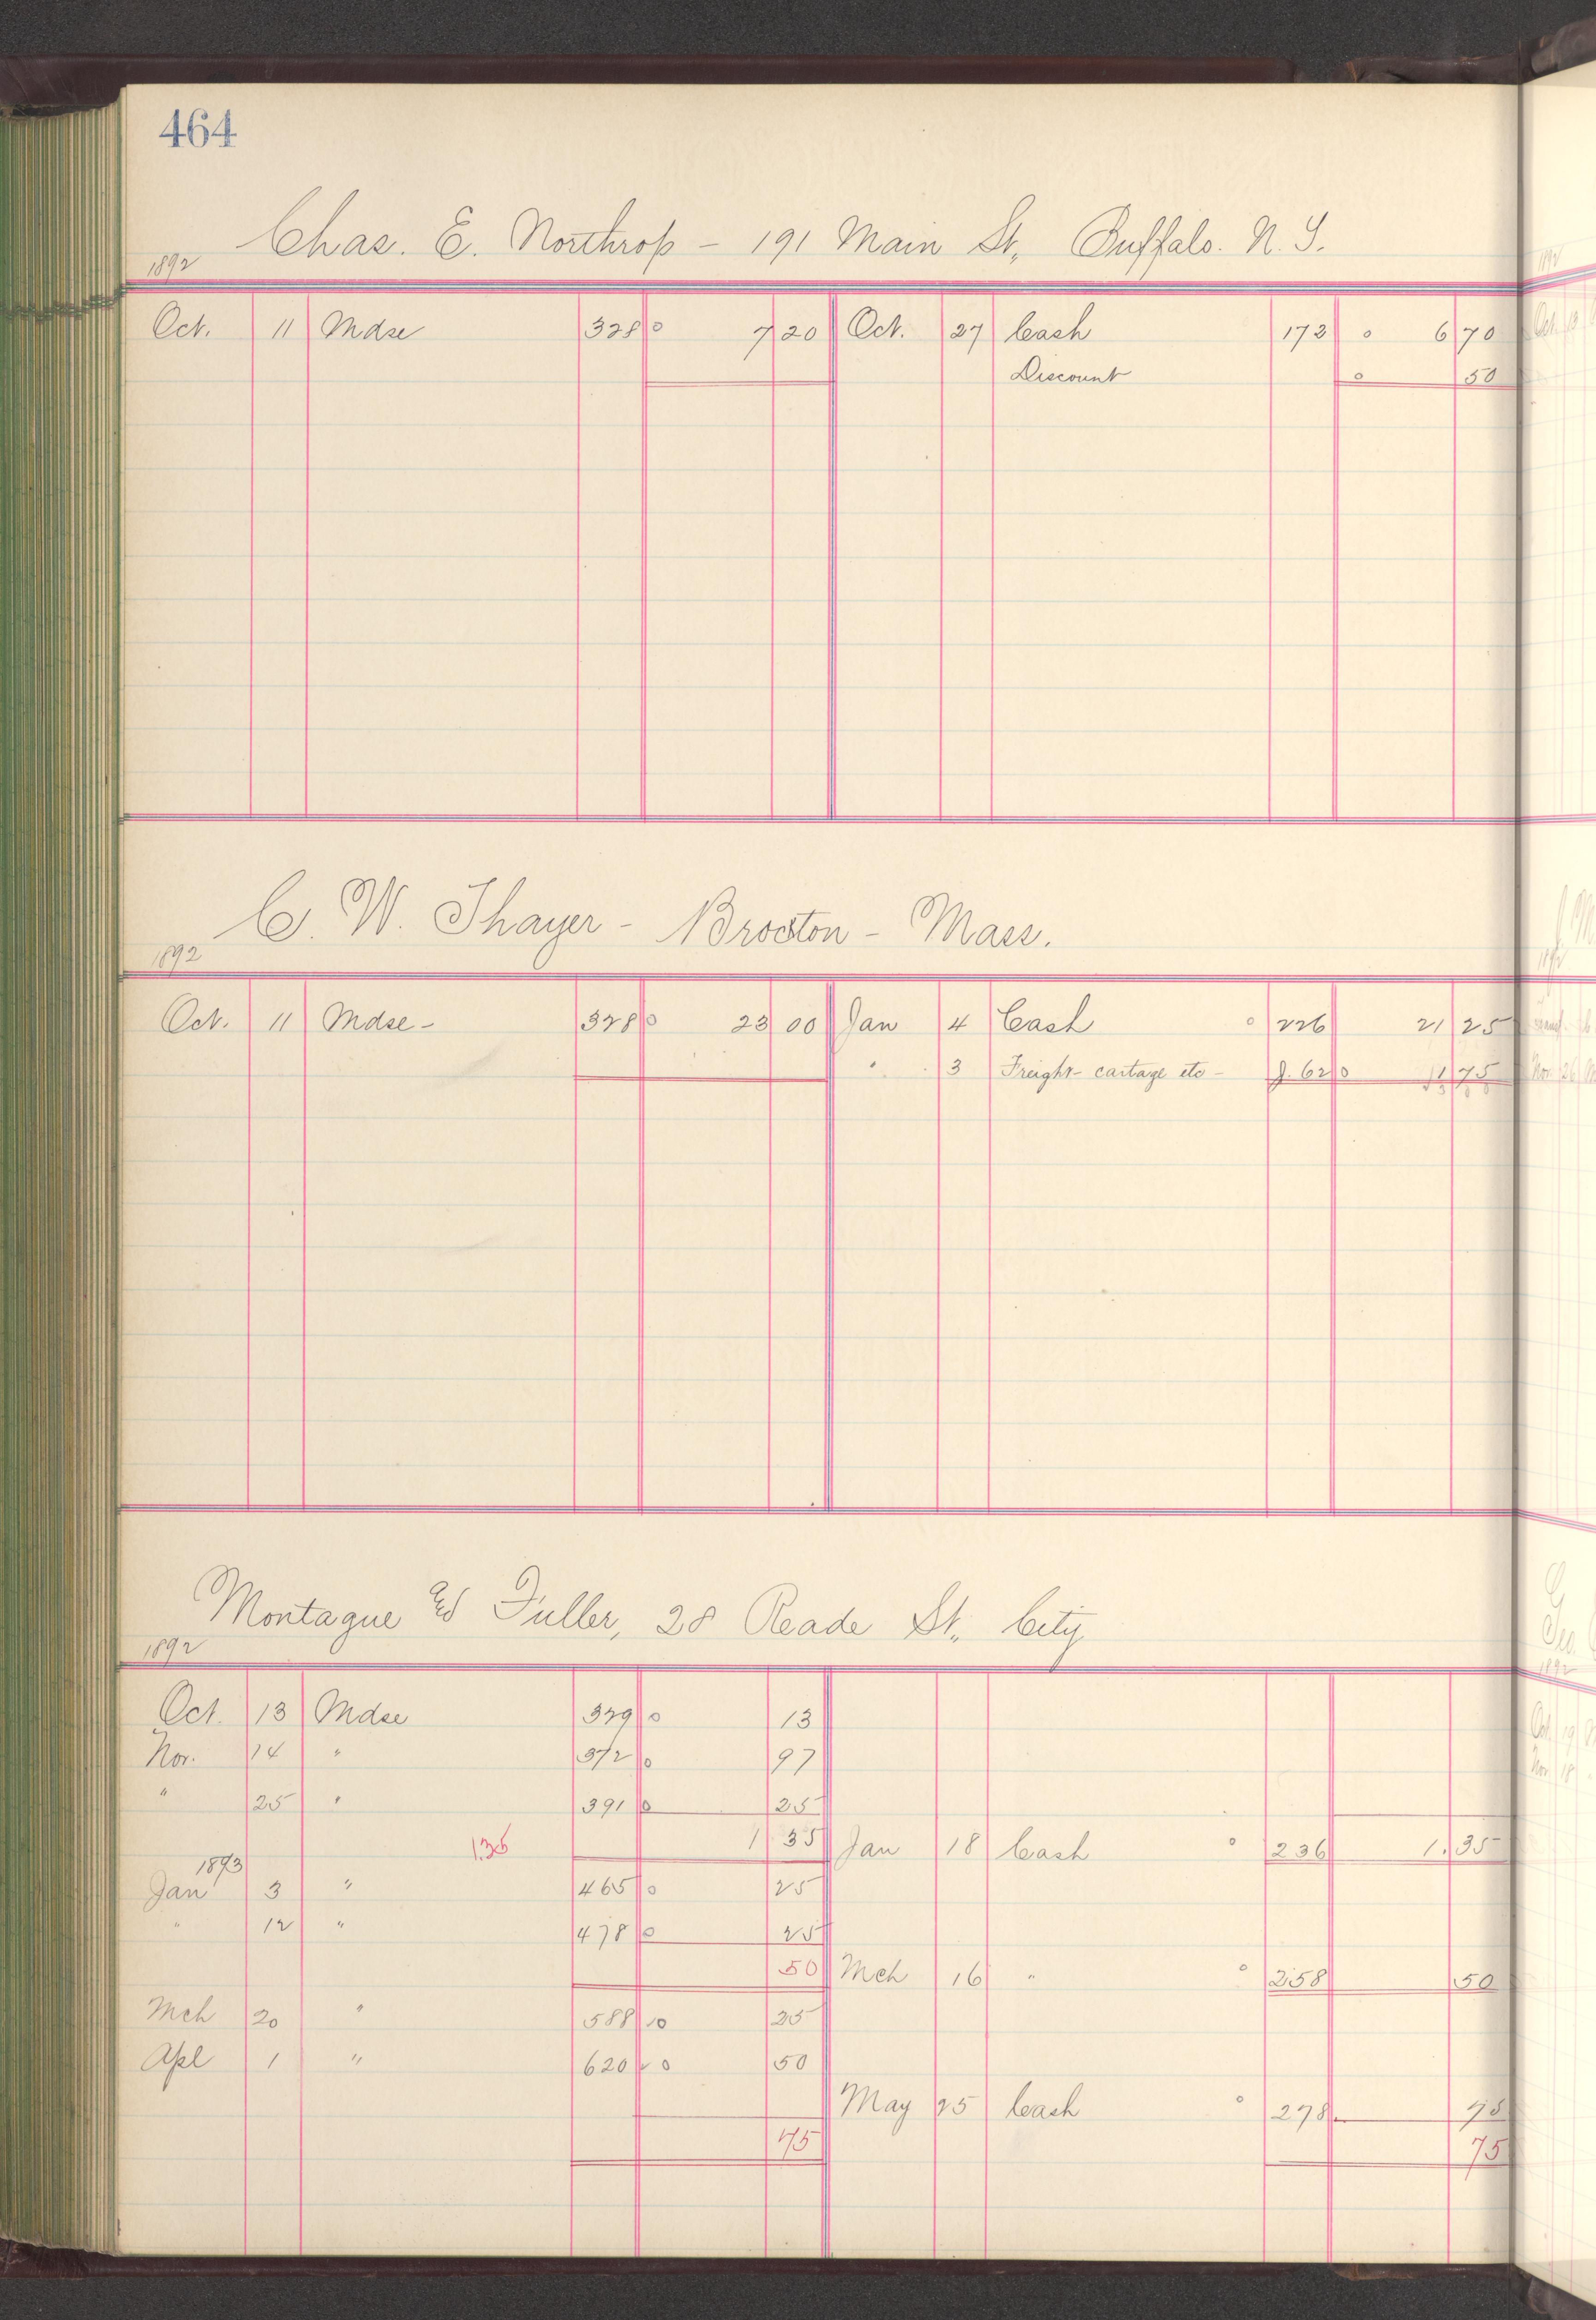 464
Chas. E. Northrop - 191 Main St, Buffalo. N. Y.
1892
Oct. 11 Mdse 328 0 7 20 Oct. 27 Cash 172 0 6 70
Discount 0 50
C. W. Thayer - Brocton - Mass.
1892
Oct. 11 Mdse - 328 0 23 00 Jan 4 Cash 0 226 21 25
" 3 Freight - cartage etc - J. 62 0 1 75
Montague & Fuller, 28 Reade St. City
1892
Oct. 13 Mdse 329 0 13
Nov. 14 " 372 0 97
" 25 " 391 0 25
1.35 1 35 Jan 18 Cash 0 236 1.35
1893
Jan 3 " 465 0 25
" 12 " 478 0 25
50 Mch 16 " 0 258 50
Mch 20 " 588 0 25
Apl 1 " 620 0 50
May 25 Cash 0 278 75
75 75